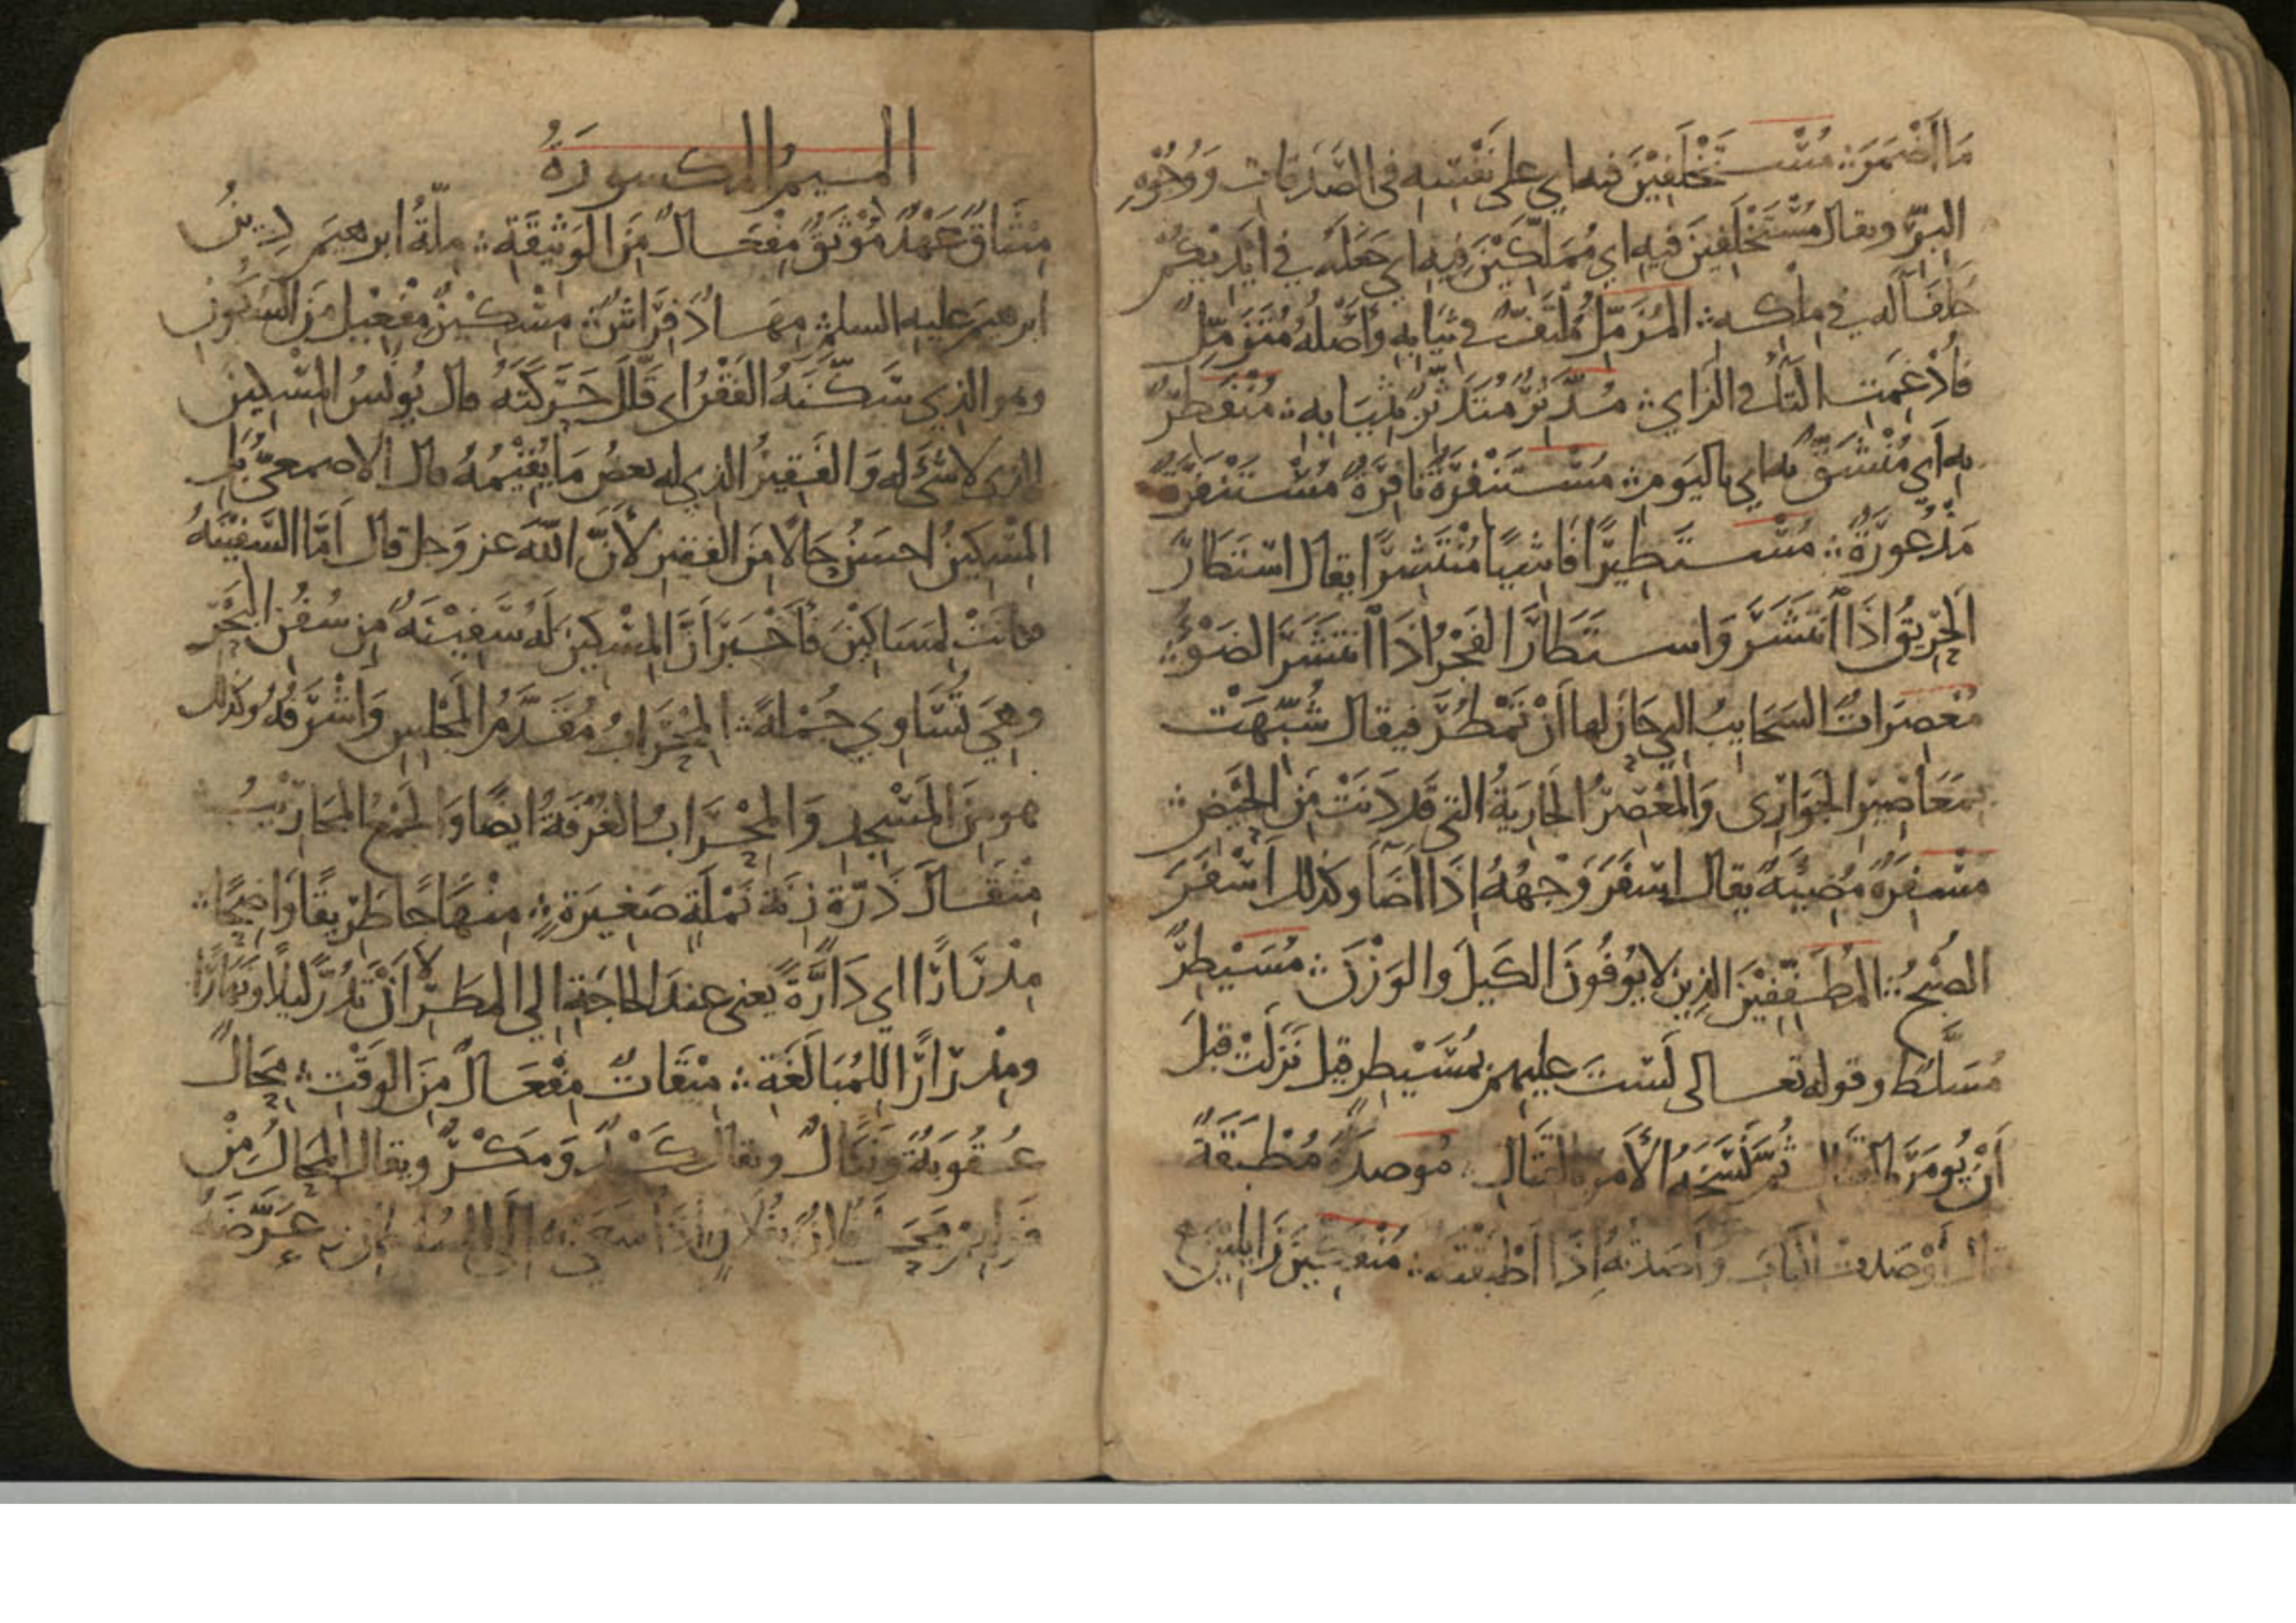 مَا أَضْمَرَ ∴ مُسْتَخْلَفِيْنَ فيه اي على نَفَقَتِهِ في الصَّدَقَاتِ وَوُجُوْهِ
البِرِّ ويقال مُسْتَخْلَفِينَ فيه اي مُمَلَّكِيْنَ فِيْهِ اي جَعَلَهُ في أَيْدِيْكُمْ
خلفا له في ملكه ∴ المُزَّمِّلُ مُلْتَفٌّ في ثِيَابِهِ وَأَصْلُهُ مُتَزَمِّلٌ
فَأُدْغِمَتِ التَّاءُ في الزاي ∴ مُدَّثِّرٌ مُتَدَثِّرٌ بِثِيَابِهِ ∴ مُنْفَطِرٌ
بِهِ أَي مُنْشَقٌّ بِهِ اي باليَومِ ∴ مُسْتَنْفِرَةٌ نَافِرَةٌ مُسْتَنْفَرَةٌ
مَذْعُورَةٌ ∴ مُسْتَطِيرًا فَاشِيًا مُنْتَشِرًا يقال اسْتَطَارَ
الحَرِيقُ اذَا انْتَشَرَ وَاسْتَطَارَ الفَجْرُ اذَا انْتَشَرَ الضَوْءُ ∴
مُعْصِرَاتٌ السَحَايِبُ التي حَانَ لها أَنْ تَمْطُرَ فيقال شُبِّهَتْ
بمَعَاصِيرِ الجَوَارِى وَالمُعْصِرُ الجَارِيَةُ التي قَد دَنَتْ مِنَ الحَيْضِ ∴
مُسْفِرَةٌ مُضِيئَةٌ يقال اسْفَرَ وَجْهُهُ إذَا أضَا وكذلك أَسْفَرَ
الصُبْحُ ∴ المُطَفِّفِيْنَ الذِين لا يُوْفُونَ الكَيلَ والوَزْنَ ∴ مُسَيْطِرٌ
مُسَلَّطٌ وقوله تعالى لَسْتَ عليهم بِمُسَيْطِرٍ قيل نَزَلَتْ قبلَ
أَنْ يُومَرَ بالقتال ثُمَّ نَسَخَهُ الأَمْرُ بالقتال ∴ مُوصَدَةٌ مُطْبَقَةٌ
أَوْصَدْتُ البابَ وآصَدْتُهُ إذَا أَطْبَقْتَهُ ∴ مُنْفَكِّيْنَ زَايِلِيْنَ
الميمُ المكسورَةُ
مِيثَاقٌ عَهْدٌ مُوْثَقٌ مِفْعَالٌ مِنَ الوَثِيقَةِ ∴ مِلَّةُ ابرهيمَ دِينُ
ابرهيمَ عليه السلم ∴ مِهَادٌ فِرَاشٌ ∴ مِسْكِيْنٌ مِفْعِيْلٌ مِنَ السُّكُونِ
وهو الذي سَكَّنَهُ الفَقْرُ اي قَلَّلَ حَرَكَتَهُ قال يُونُسُ المِسْكِينُ
الذى لا شَيْءَ له وَالفَقِيرُ الذي له بعضُ مَا يُقِيْمُهُ قال الاصمعيُّ بَل
المِسْكِينُ احسَنُ حَالًا مِنَ الفقيرِ لأَنَّ اللهَ عز وَجل قال أَمَّا السَّفِيْنَةُ
فكانَتْ لِمَسَاكِيْنَ فَأَخْبَرَ أَنَّ المِسْكِينَ لَهُ سَفِيْنَةٌ مِن سُفُنِ البَحْرِ
وهيَ تُسَاوِي جُمْلَةً ∴ المِحْرَابُ مُقَدَّمُ المَجْلِسِ وَأَشْرَفُهُ وكذلك
هو مِنَ المَسْجِدِ وَالمِحْرَابُ الغُرْفَةُ ايضًا وَالجَمْعُ المَحَارِيْبُ
مِثْقَالَ ذَرَّةٍ زِنَةَ نَمْلَةٍ صَغِيرَةٍ ∴ مِنْهَاجًا طَرِيقًا وَاضِحًا ∴
مِدْرَارًا اي دَارَّةً يعني عندَ الحاجَةِ الي المَطَرِ لا أَنْ تَدُرَّ ليلًا ونَهَارًا
ومِدْرَارًا للمُبَالَغَةِ ∴ مِيْقَاتٌ مِفْعَالٌ مِنَ الوَقْتِ ∴ مِحَالٌ
عُقُوبَةٌ وَنَكَالٌ ويقال كَيْدٌ وَمَكْرٌ ويقال المِحَالُ مِنْ
قَوْلِهِمْ مَحَلَ فُلانٌ بِفُلانٍ اذَا سَعَى بِهِ إلَى السُلْطَانِ وعَرَّضَهُ